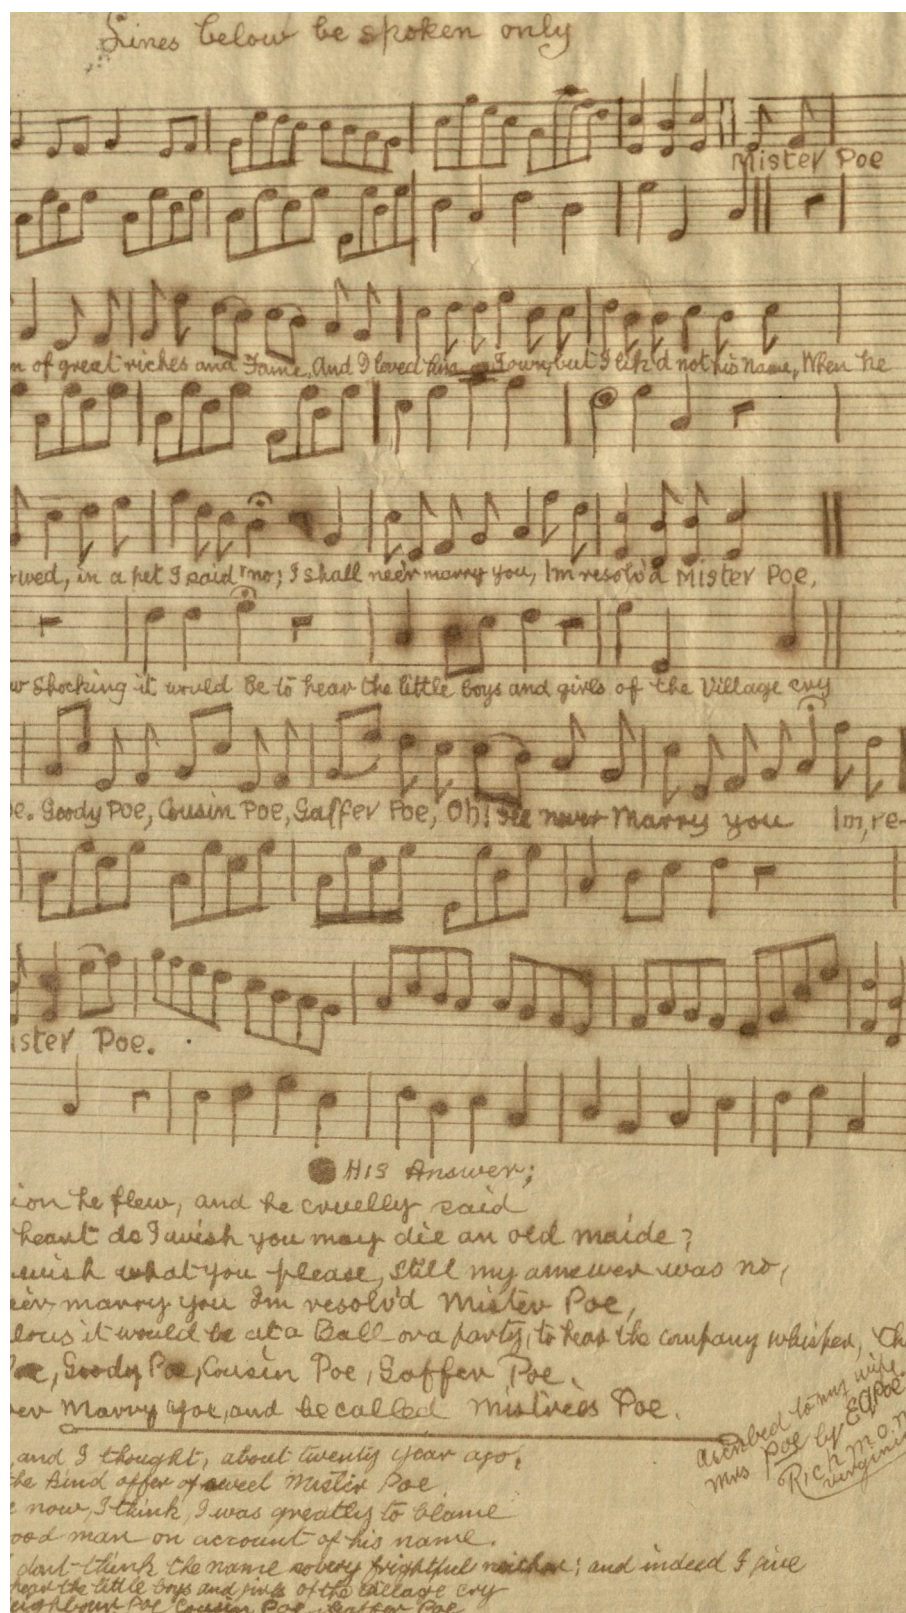 Lines below be spoken only
Mister Poe
n of great riches and Fame, And I loved him Town, but I lik'd not his Name, When he
wed, in a pet I said "no; I shall neèr marry you, Im resolv'd Mister Poe,
w Shocking it would Be to hear the little boys and girls of the Village cry
e. Goody Poe, Cousin Poe, Gaffer Poe, Oh! never Marry you Im,re-
ister Poe.
His Answer;
ion he flew, and he cruelly said
heart do I wish you may die an old maide?
wish what you please, still my answer was no,
èr marry you Im resolv'd Mister Poe,
lous it would be at a Ball or a party, to hear the company whisper, Th
Poe, Goody Poe, Cousin Poe, Gaffer Poe.
er Marry you, and be called Mistress Poe.
to my wife
Mrs Poe by EAPoe.
Richmon
Virgini
and I thought, about twenty year ago,
he kind offer of sweet Mister Poe
now, I think, I was greatly to blame
ood man on account of his name.
dont think the name so very frightful neither; and indeed I give
hear the little boys and girls of the village cry
eighbour Poe Cousin Poe, Gaffer Poe